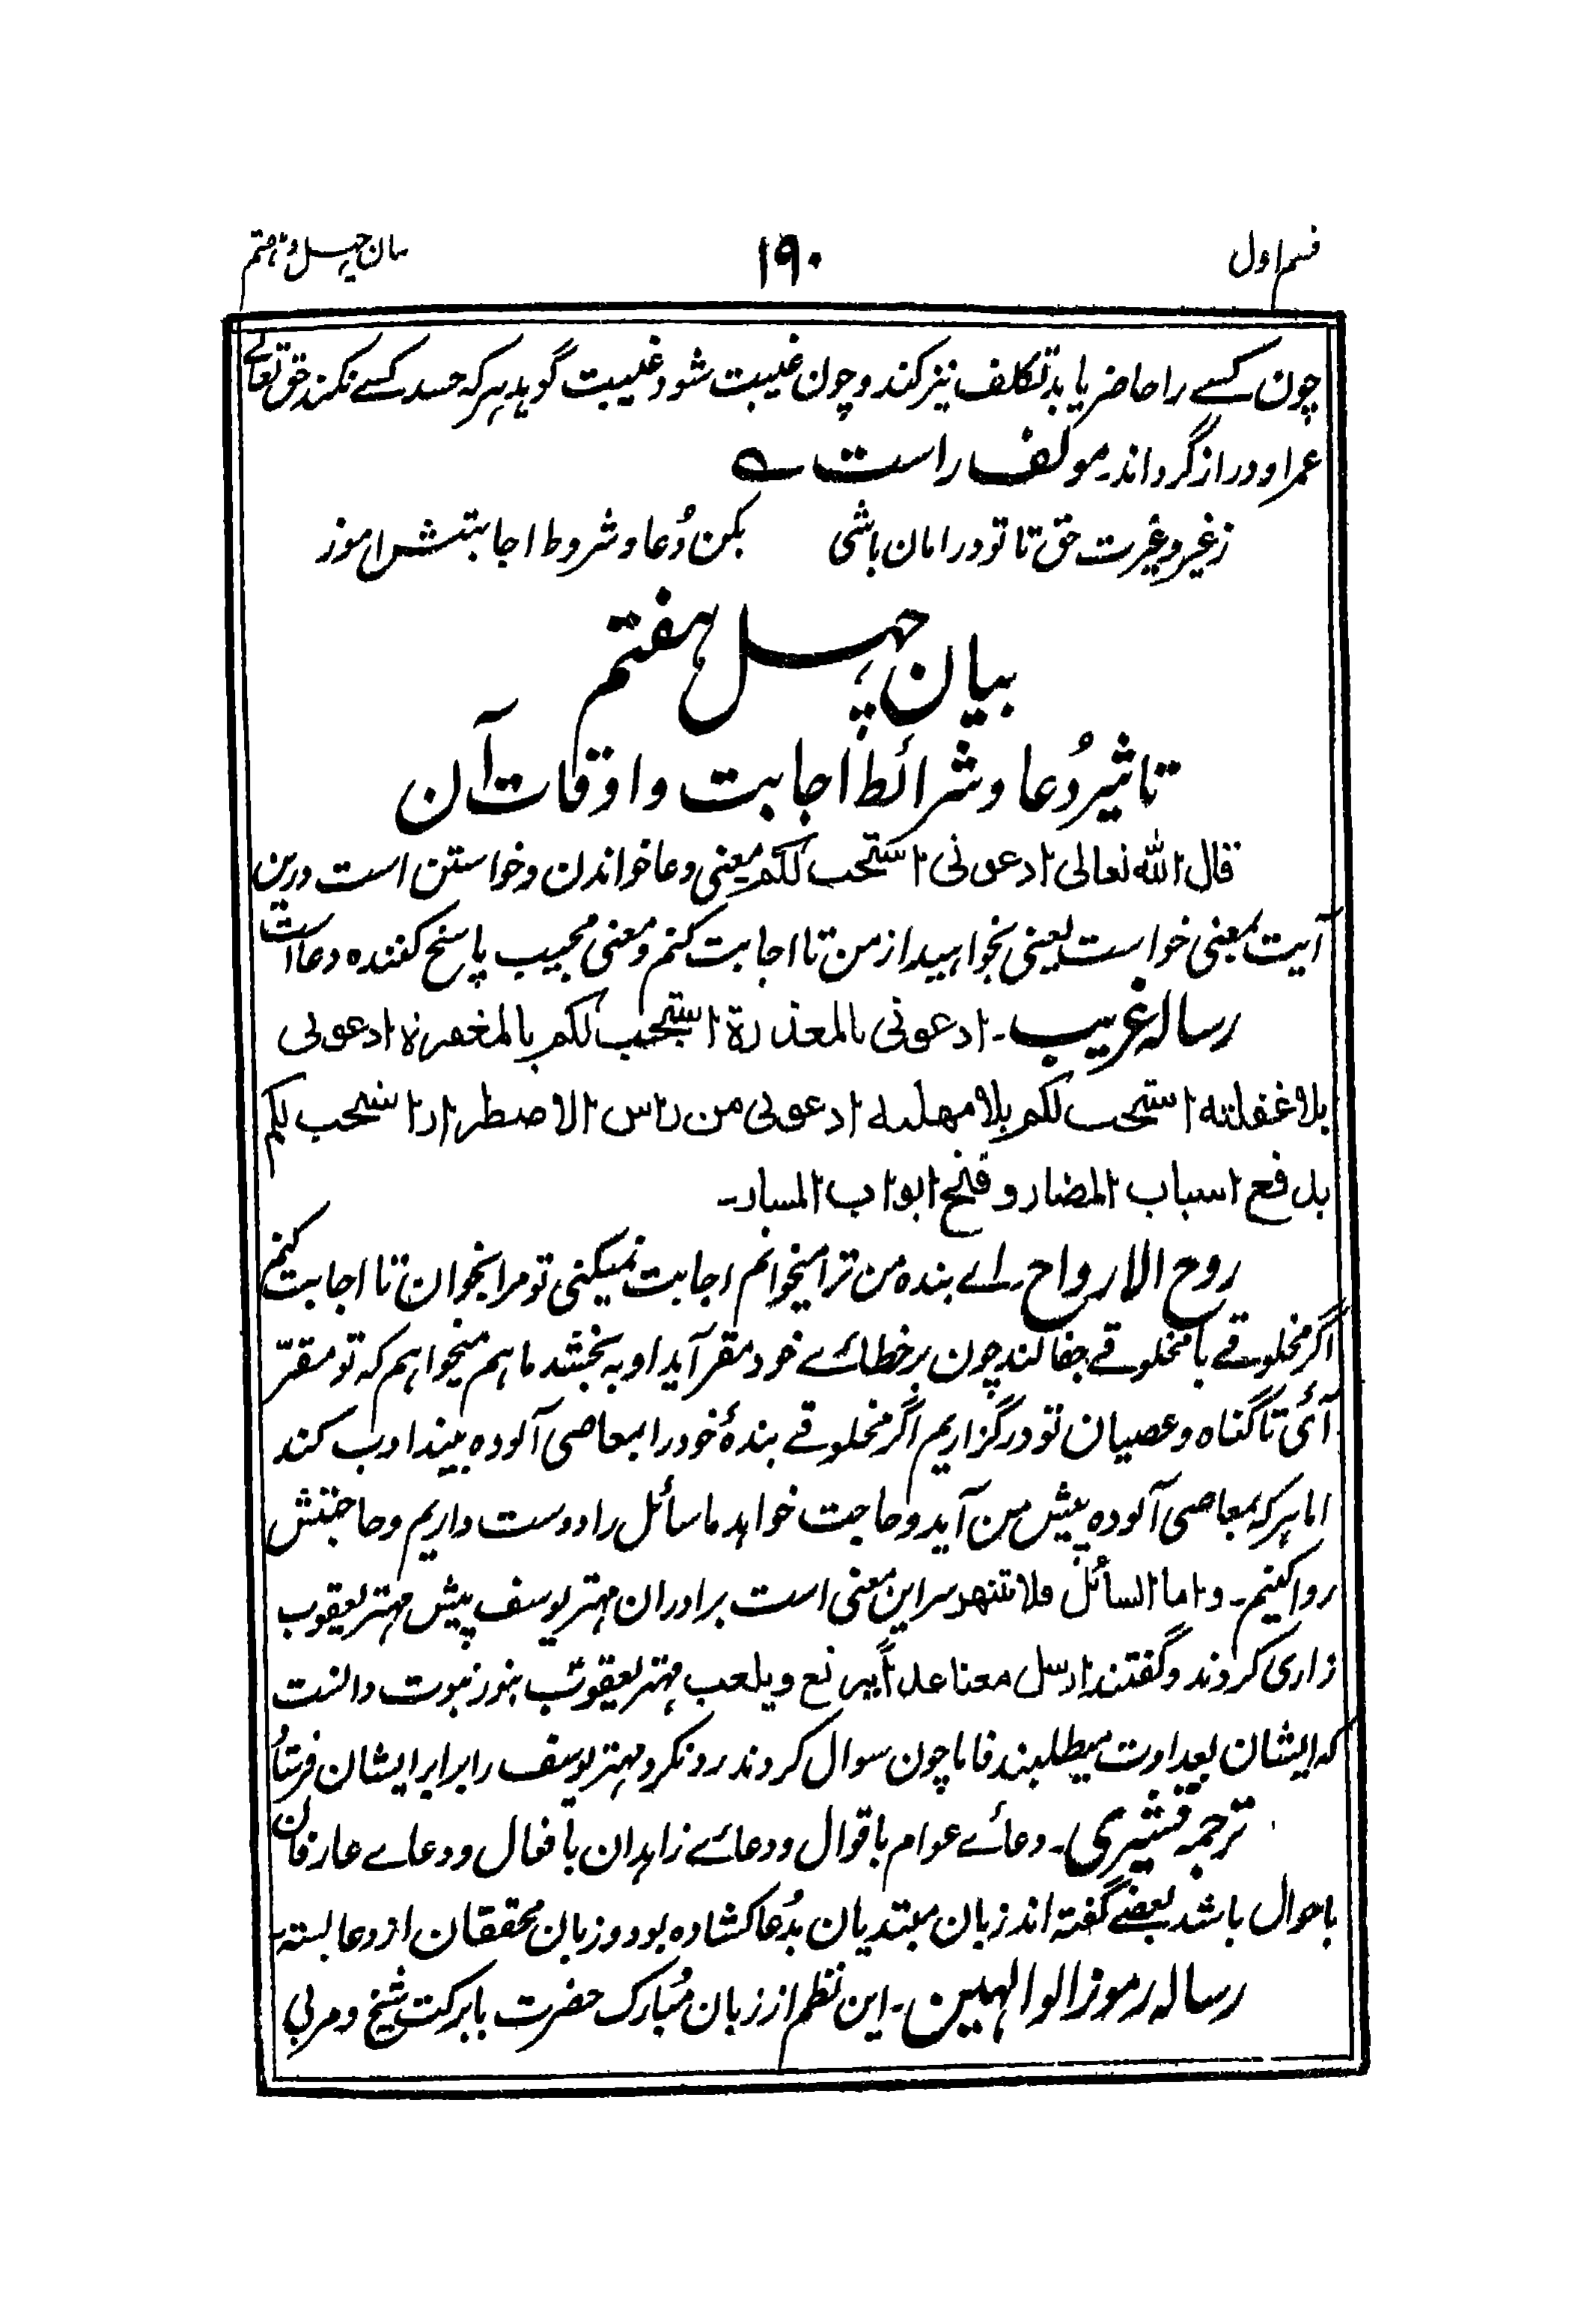 قسم اول ۱۹۰ بیان چہل و ہفتم
چون کسے را حاضر یابد تکلف نیز کند و چون غیبت شود غیبت گوید ہر کہ حسد کسے نکند حق تعالے
عمر او دراز گرداند۔ مولف راست ؎
زغیر و غیرت حق تا تو در امان باشی بکن دُعا و شروط اجابتش اموز
بیان چہل ہفتم
تاثیر دُعا و شرائط اجابت و اوقات آن
قال اللہ تعالی ادعونی استجب لکم معنی دعا خواندن و خواستن است درین
آیت بمعنی خواست یعنی بخواہید از من تا اجابت کنم و معنی مجیب پاسخ کنندہ دعا است
رسالہ غریب۔ ادعونی بالمعذرة استجب لکم بالمغفرة ادعونی
بلا غفلتہ استجب لکم بلا مھلتہ ادعونی من راس الاضطرار استجب لکم
بدفع اسباب المضار و فتح ابواب المسار۔
روح الارواح۔ اے بندہ من ترا میخوانم اجابت نمیکنی تو مرا بخوان تا اجابت کنم
اگر مخلوقے با مخلوقے جفا کند چون بر خطائے خود مقر آید او بہ بخشد ما ہم میخواہم کہ تو مقرّ
آئی تا گناہ و عصیان تو در گزاریم اگر مخلوقے بندۂ خود را بمعاصی آلودہ بیند ادب کند
اما ہر کہ بمعاصی آلودہ پیش من آید و حاجت خواہد ما سائل را دوست داریم و حاجتش
روا کنیم۔ و اما السائل فلا تنھر سر این معنی است برادران مہتر یوسف پیش مہتر یعقوب
زاری کردند و گفتند ارسل معنا غداً یرتع و یلعب مہتر یعقوبؑ بنور نبوت دانست
کہ ایشان بعداوت میطلبند فاما چون سوال کردند رد نکرد مہتر یوسف را برابر ایشان فرستاد
ترجمہ قشیری۔ دعائے عوام باقوال و دعائے زاہدان بافعال و دعاے عارفان
باحوال باشد بعضے گفتہ اند زبان مبتدیان بدُعا کشادہ بود و زبان محققان از دعا بستہ۔
رسالہ رموز الوالہین۔ این نظم از زبان مُبارک حضرت بابرکت شیخ و مربی